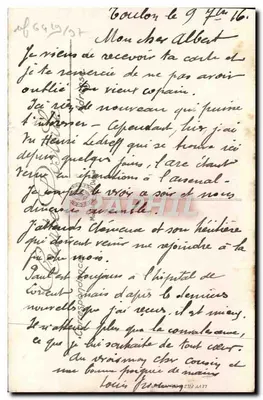 Toulon le 9 7bre 16.
Mon cher Albert
Je viens de recevoir ta carte et
je te remercie de ne pas avoir
oublié ton vieux copain.
J'ai rien de nouveau qui puisse
t'intéresser - Cependant, hier j'ai
vu Henri qui se trouve ici
depuis quelques jours,
venu en réparations à l'arsenal -
Je le vois ce soir et nous
dinerons ensemble.
J'attends et son
qui doivent venir me rejoindre à la
fin du mois.
Paul est toujours à l'hôpital de
mais d'après les dernières
nouvelles que j'ai reçues, il est mieux.
Il n'attend plus que la convalescence,
ce que je lui souhaite de tout cœur.
Au revoir mon cher cousin et
une bonne poignée de mains
Louis